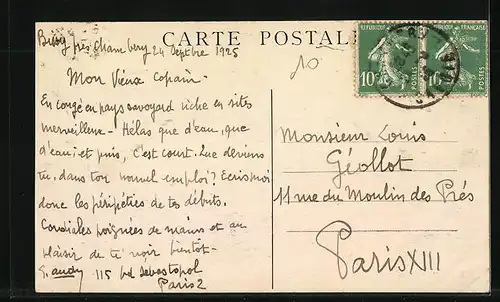 CARTE POSTALE
Bissy près Chambéry 24 Septbre 1925
Mon Vieux copain -
En congé en pays savoyard riche en sites
merveilleux - Hélas que d'eau, que
d'eau, et puis, c'est court. Que deviens
tu, dans ton nouvel emploi? Ecris moi
donc les péripéties de tes débuts.
Cordiales poignées de mains et au
plaisir de te voir bientôt -
115 bd Sebastopol
Paris 2
10
REPUBLIQUE FRANÇAISE
10c
POSTES
10c
POSTES
Monsieur Louis
Géollot
11 rue du Moulin des Prés
Paris XIII